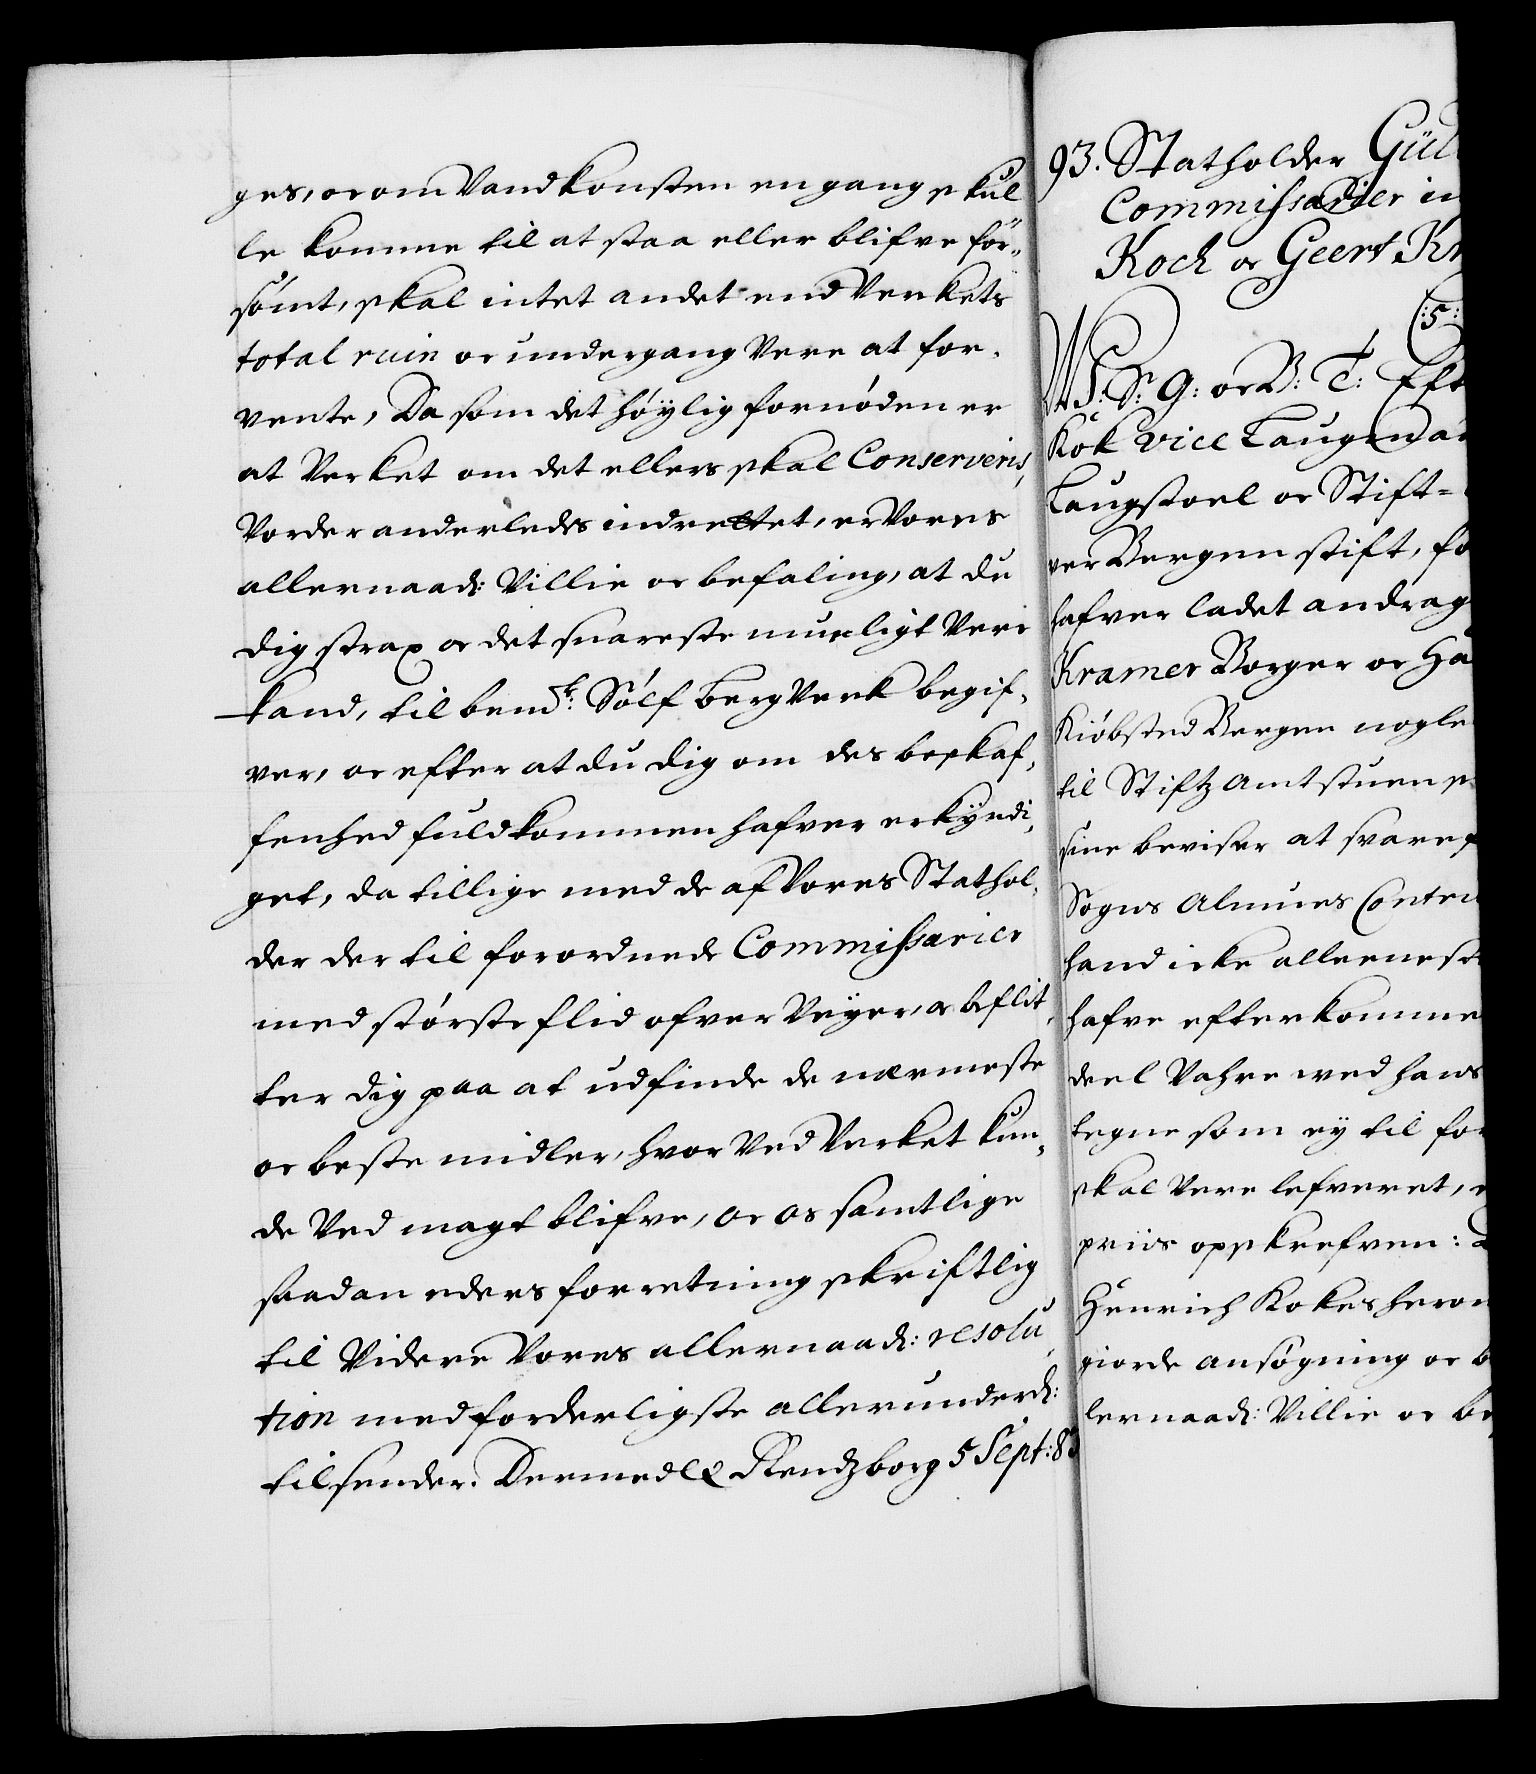 ges, oc om Vandkonsten en gang skul
le komme til at staa eller blifve for,,
sömt, skal intet andet end Verkets
total ruin oc undergang Vere at for,
vente, Da som det höylig fornöden er
at Verket om det ellers skal Conserveris,
Vorder anderledis indrettet, er Vores
allernaad: Villie oc befaling, at du
dig strax oc det snareste mueligt Vere
kand, til bemt: Sölf BergVerk begif,
ver, oc efter at du dig om des beskaf,
fenhed fuldkommen hafver erkyndi,
get, da tillige med de af Vores Stathol,
der der til forordnede Commissarier
med störste flid ofver Veyer, oc beflit,
ter dig paa at udfinde de nærmeste
oc beste midler, hvor Ved Verket kun,
de Ved magt blifve, oc os samtlige
saadan eders forretning skriftlig
til Videre Vores allernaad: resolu,
tion med forderligste allerunderd:
tilsender. Dermed &c Rendzborg 5 Sept: 8
93. Statholder Gül
Commissarier in
Koch oc Geert Kr
(:5:
W S. S: G: oc B: T: Eft
Kok vice Laugma
Laugstoel oc Stift=
ver Bergen stift, fo
hafver ladet andrag
Kramer Borger oc Ha
Kiöbsted Bergen nogle
til Stiftz Amtstuen s
sine beviser at svare
Sogns Almues Conten
hand icke alleeneste
hafve efterkomme
deel Vahre med hans
tegne som ey til for
skal Vere lefveret,
priis opskrefven:
Henrich Kokes herom
giorde ansögning oc b
lernaad: Villie oc be